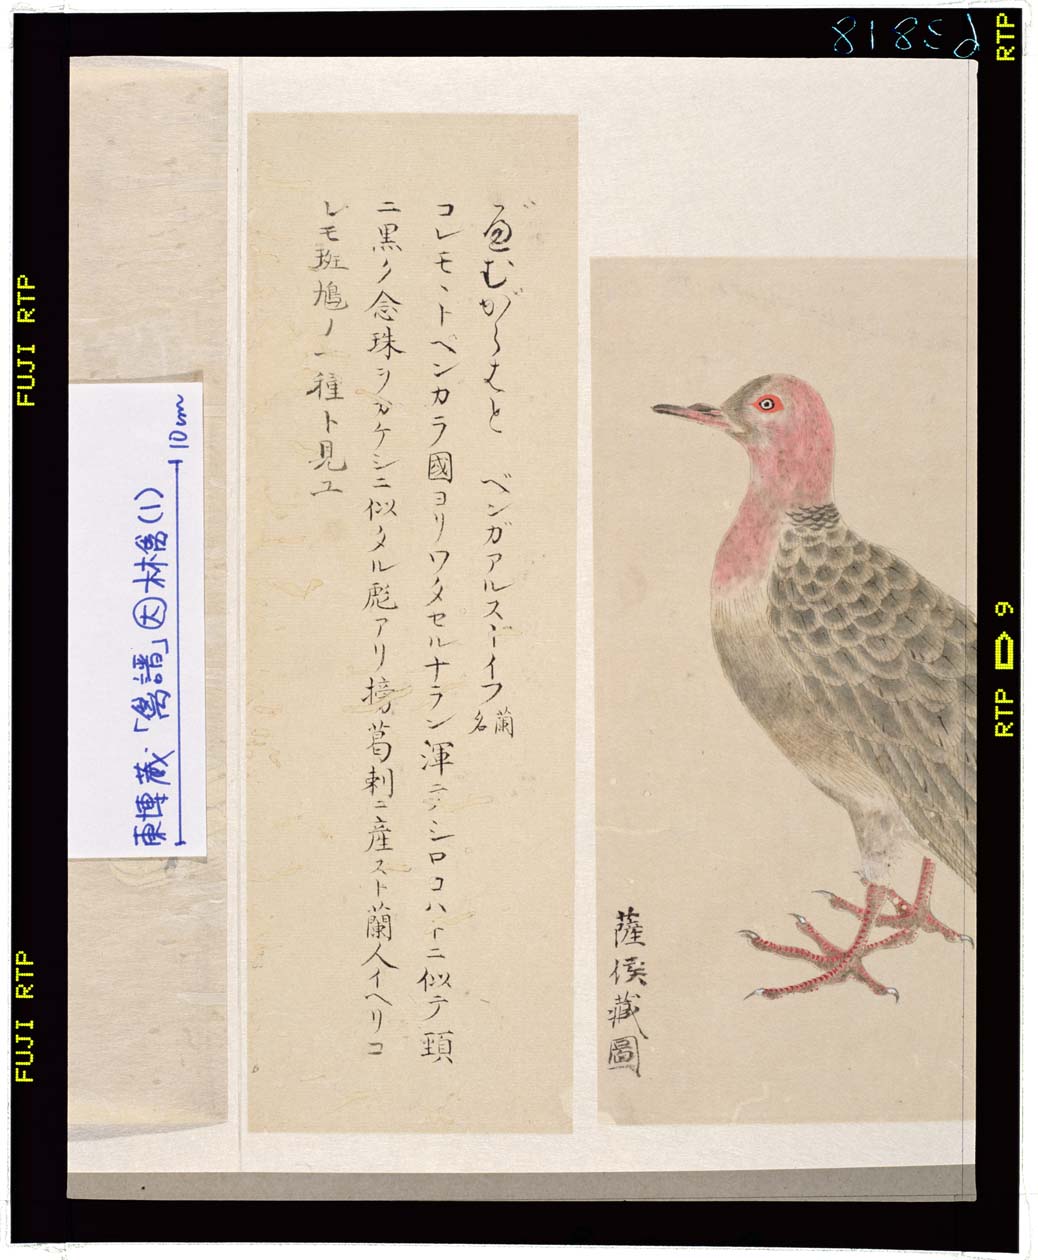 べむがらはと ベンガアルスドイフ 蘭名
コレモヽトベンカラ國ヨリワタセルナラン渾テシロコハトニ似テ頸
ニ黒ク念珠ヲカケシニ似タル彪アリ榜葛剌ニ産スト蘭人イヘリコ
レモ斑鳩ノ一種ト見ユ
薩侯藏圖
東博蔵「鳥譜」因 林禽(1)
10cm
62818
RTP
FUJI RTP
FUJI RTP
RTP
9